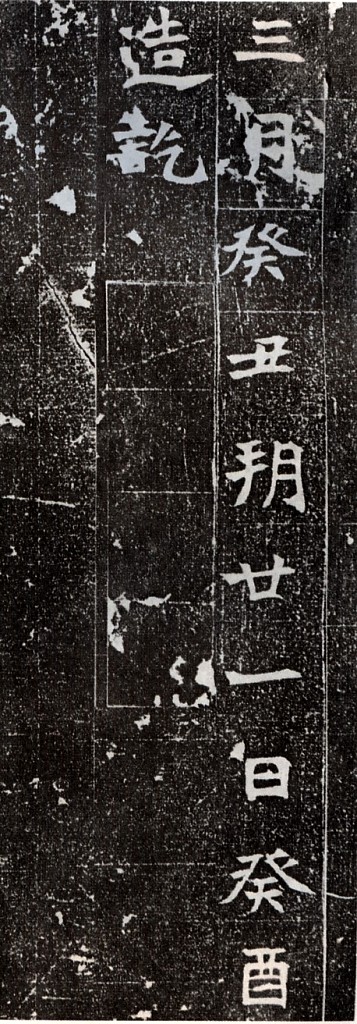 三月癸丑朔廿一日癸酉
造訖